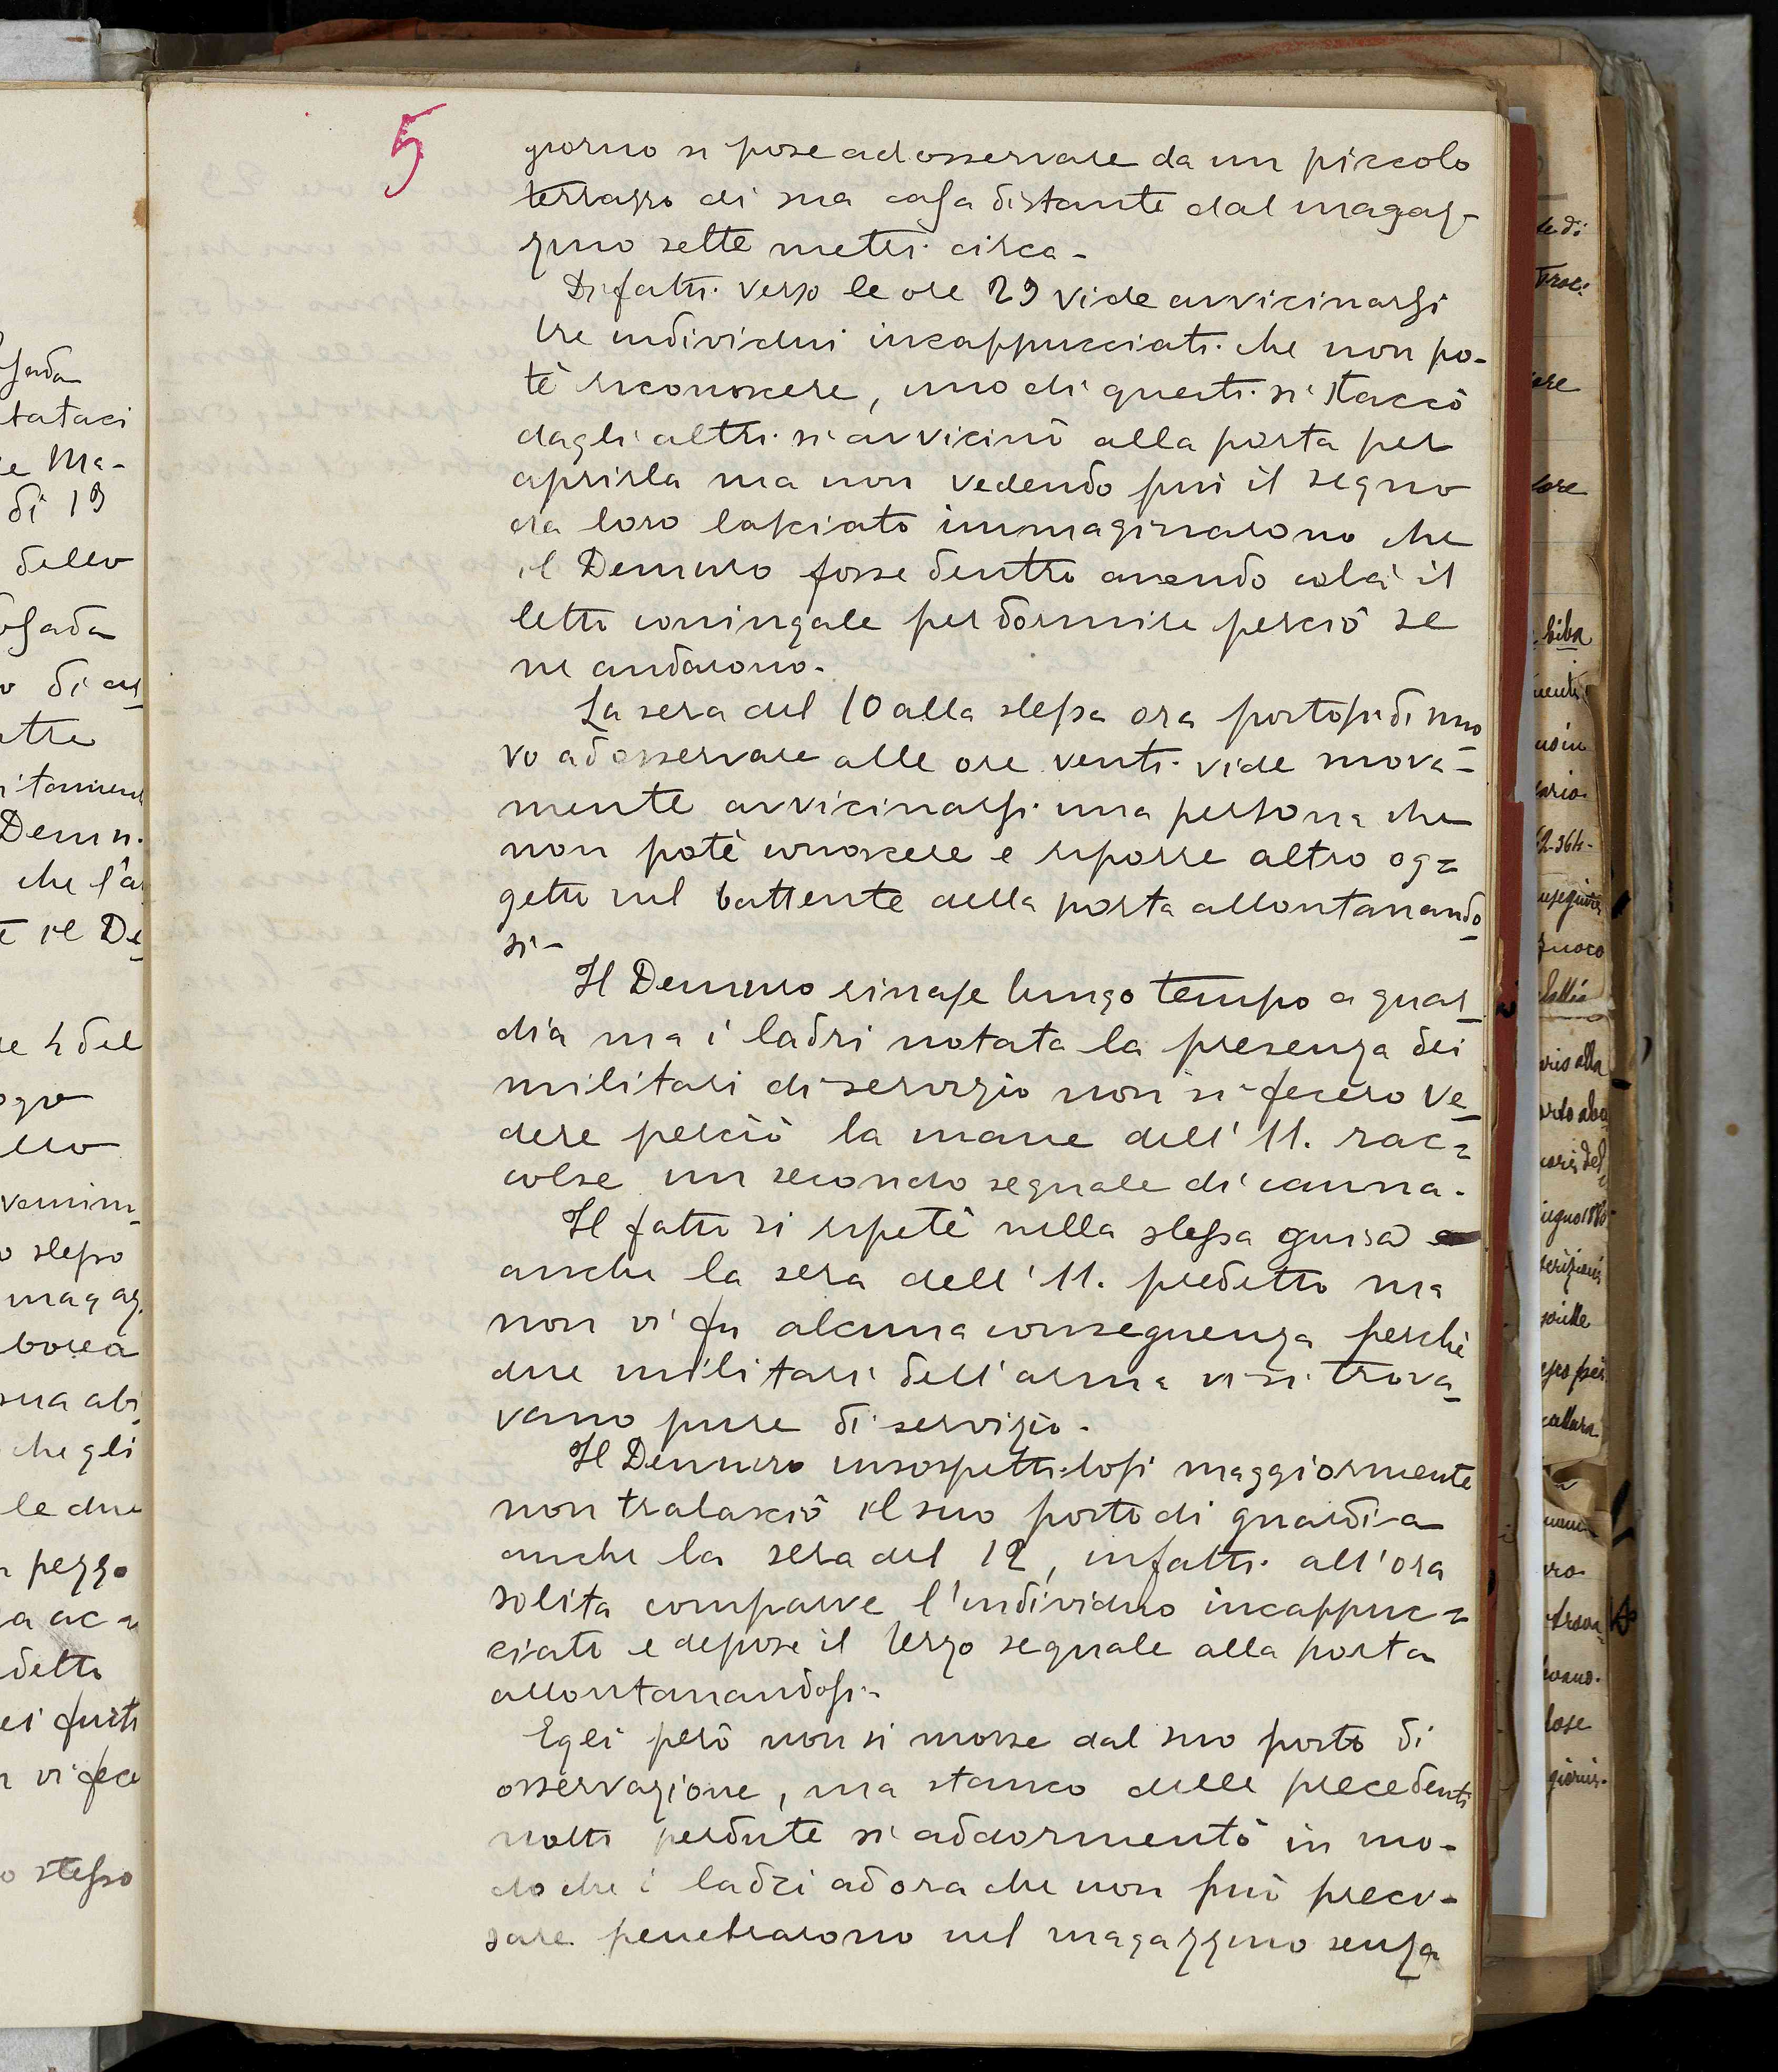 5
giorno si pose ad osservare da un piccolo
terrazzo di sua casa distante dal magaz-
zino sette metri circa-
Difatti verso le ore 29 vide avvicinarsi
tre individui incappucciati che non po-
tè riconoscere, uno di questi si staccò
dagli altri si avvicinò alla porta per
aprirla ma non vedendo più il segno
da loro lasciato immaginarono che
il Demuro fosse dentro avendo colà il
letto coniugale per dormire perciò se
ne andarono.
La sera del 10 alla stessa ora portosi di nuo
vo ad osservare alle ore venti vide nuova-
mente avvicinarsi una persona che
non potè conoscere e ripose altro og=
getto sul battente della porta allontanando
si-
Il Demuro rimase lungo tempo a guar
dia ma i ladri notata la presenza dei
militari di servizio non si fecero ve
dere perciò la mane dell'11. rac=
colse un secondo segnale di canna.
Il fatto si ripetè nella stessa guisa
anche la sera dell'11. predetto ma
non vi fu alcuna conseguenza perchè
due militari dell'arma vi si trova
vano pure di servizio.
Il Demuro insospettitosi maggiormente
non tralasciò il suo posto di guardia
anche la sera del 12, infatti all'ora
solita comparve l'individuo incappuc=
ciato e depose il terzo segnale alla porta
allontanandosi-
Egli però non si mosse dal suo posto di
osservazione, ma stanco delle precedenti
notti perdute si addormentò in mo-
do che i ladri ad ora che non può preci-
sare penetrarono nel magazzino senza